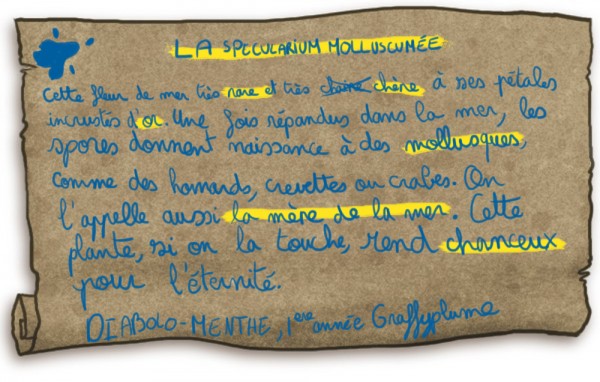 LA SPECULARIUM MOLLUSCUMÉE
Cette fleur de mer très rare et très chaine chène à ses pétales
incrustés d'or. Une fois répandus dans la mer, les
spores donnent naissance à des mollusques,
comme des homards, crevettes ou crabes. On
l'appelle aussi la mère de la mer. Cette
plante, si on la touche, rend chanceux
pour l'éternité.
DIABOLO-MENTHE, 1ère année Graffyplume